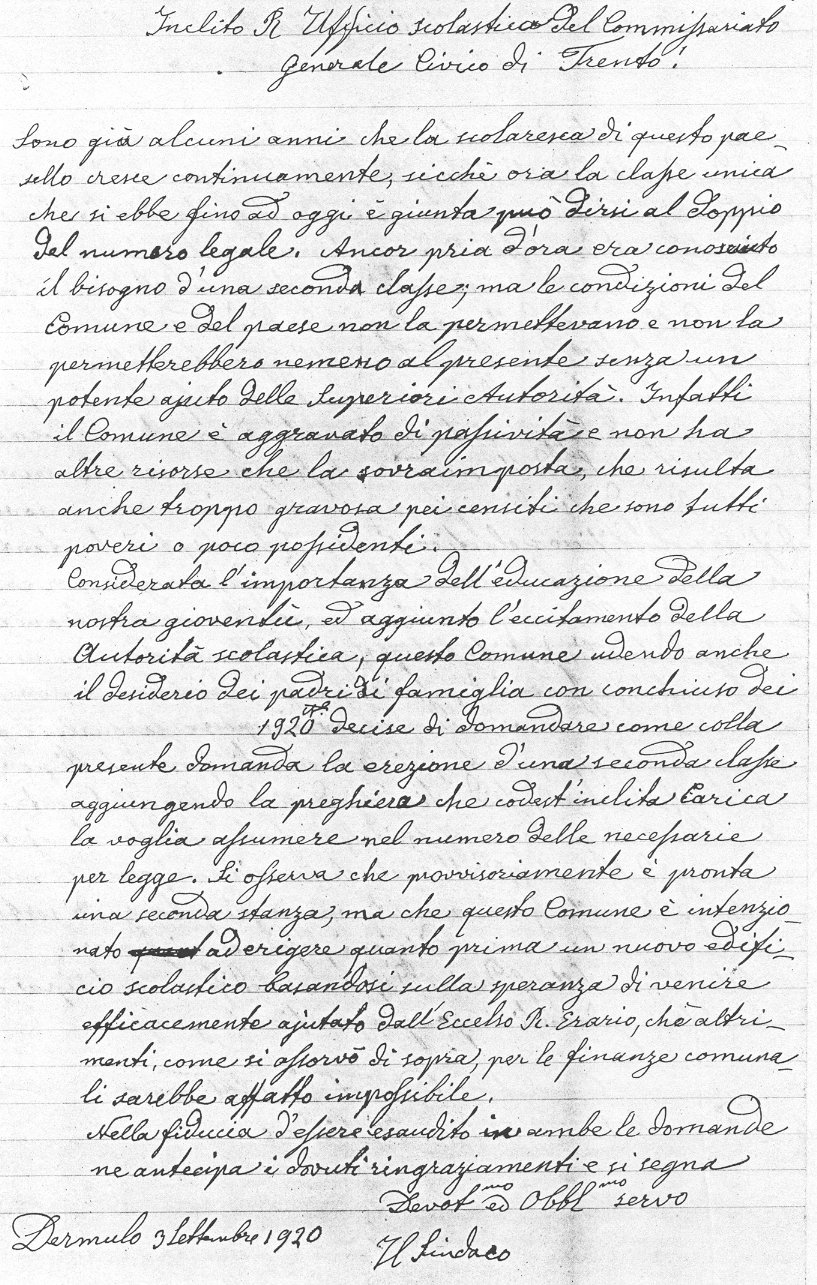 Inclito R Ufficio scolastico del Commissariato
Generale Civico di Trento!
Sono già alcuni anni che la scolaresca di questo pae-
sello cresce continuamente, sicchè ora la classe unica
che si ebbe fino ad oggi è giunta può dirsi al doppio
del numero legale. Ancor pria d'ora era conosciuto
il bisogno d'una seconda classe; ma le condizioni del
Comune e del paese non la permettevano e non la
permetterebbero nemeno al presente senza un
potente ajuto delle Superiori Autorità. Infatti
il Comune è aggravato di passività e non ha
altre risorse che la sovraimposta, che risulta
anche troppo gravosa pei censiti che sono tutti
poveri o poco possidenti.
Considerata l'importanza dell'educazione della
nostra gioventù, ed aggiunto l'eccitamento della
Autorità scolastica, questo Comune udendo anche
il desiderio dei padri di famiglia con conchiuso dei
1920 decise di domandare come colla
presente domanda la erezione d'una seconda classe
aggiungendo la preghiera che codest'inclita Carica
la voglia assumere nel numero delle necessarie
per legge. Si osserva che provvisoriamente è pronta
una seconda stanza, ma che questo Comune è intenzio-
nato ad erigere quanto prima un nuovo edifi-
cio scolastico basandosi sulla speranza di venire
efficacemente ajutato dall'Eccelso R. Erario, chè altri-
menti, come si osservò di sopra, per le finanze comuna-
li sarebbe affatto impossibile.
Nella fiducia d'essere esaudito in ambe le domande
ne antecipa i dovuti ringraziamenti e si segna
Devot.mo ed Obbl.mo servo
Dermulo 3 Settembre 1920
Il Sindaco